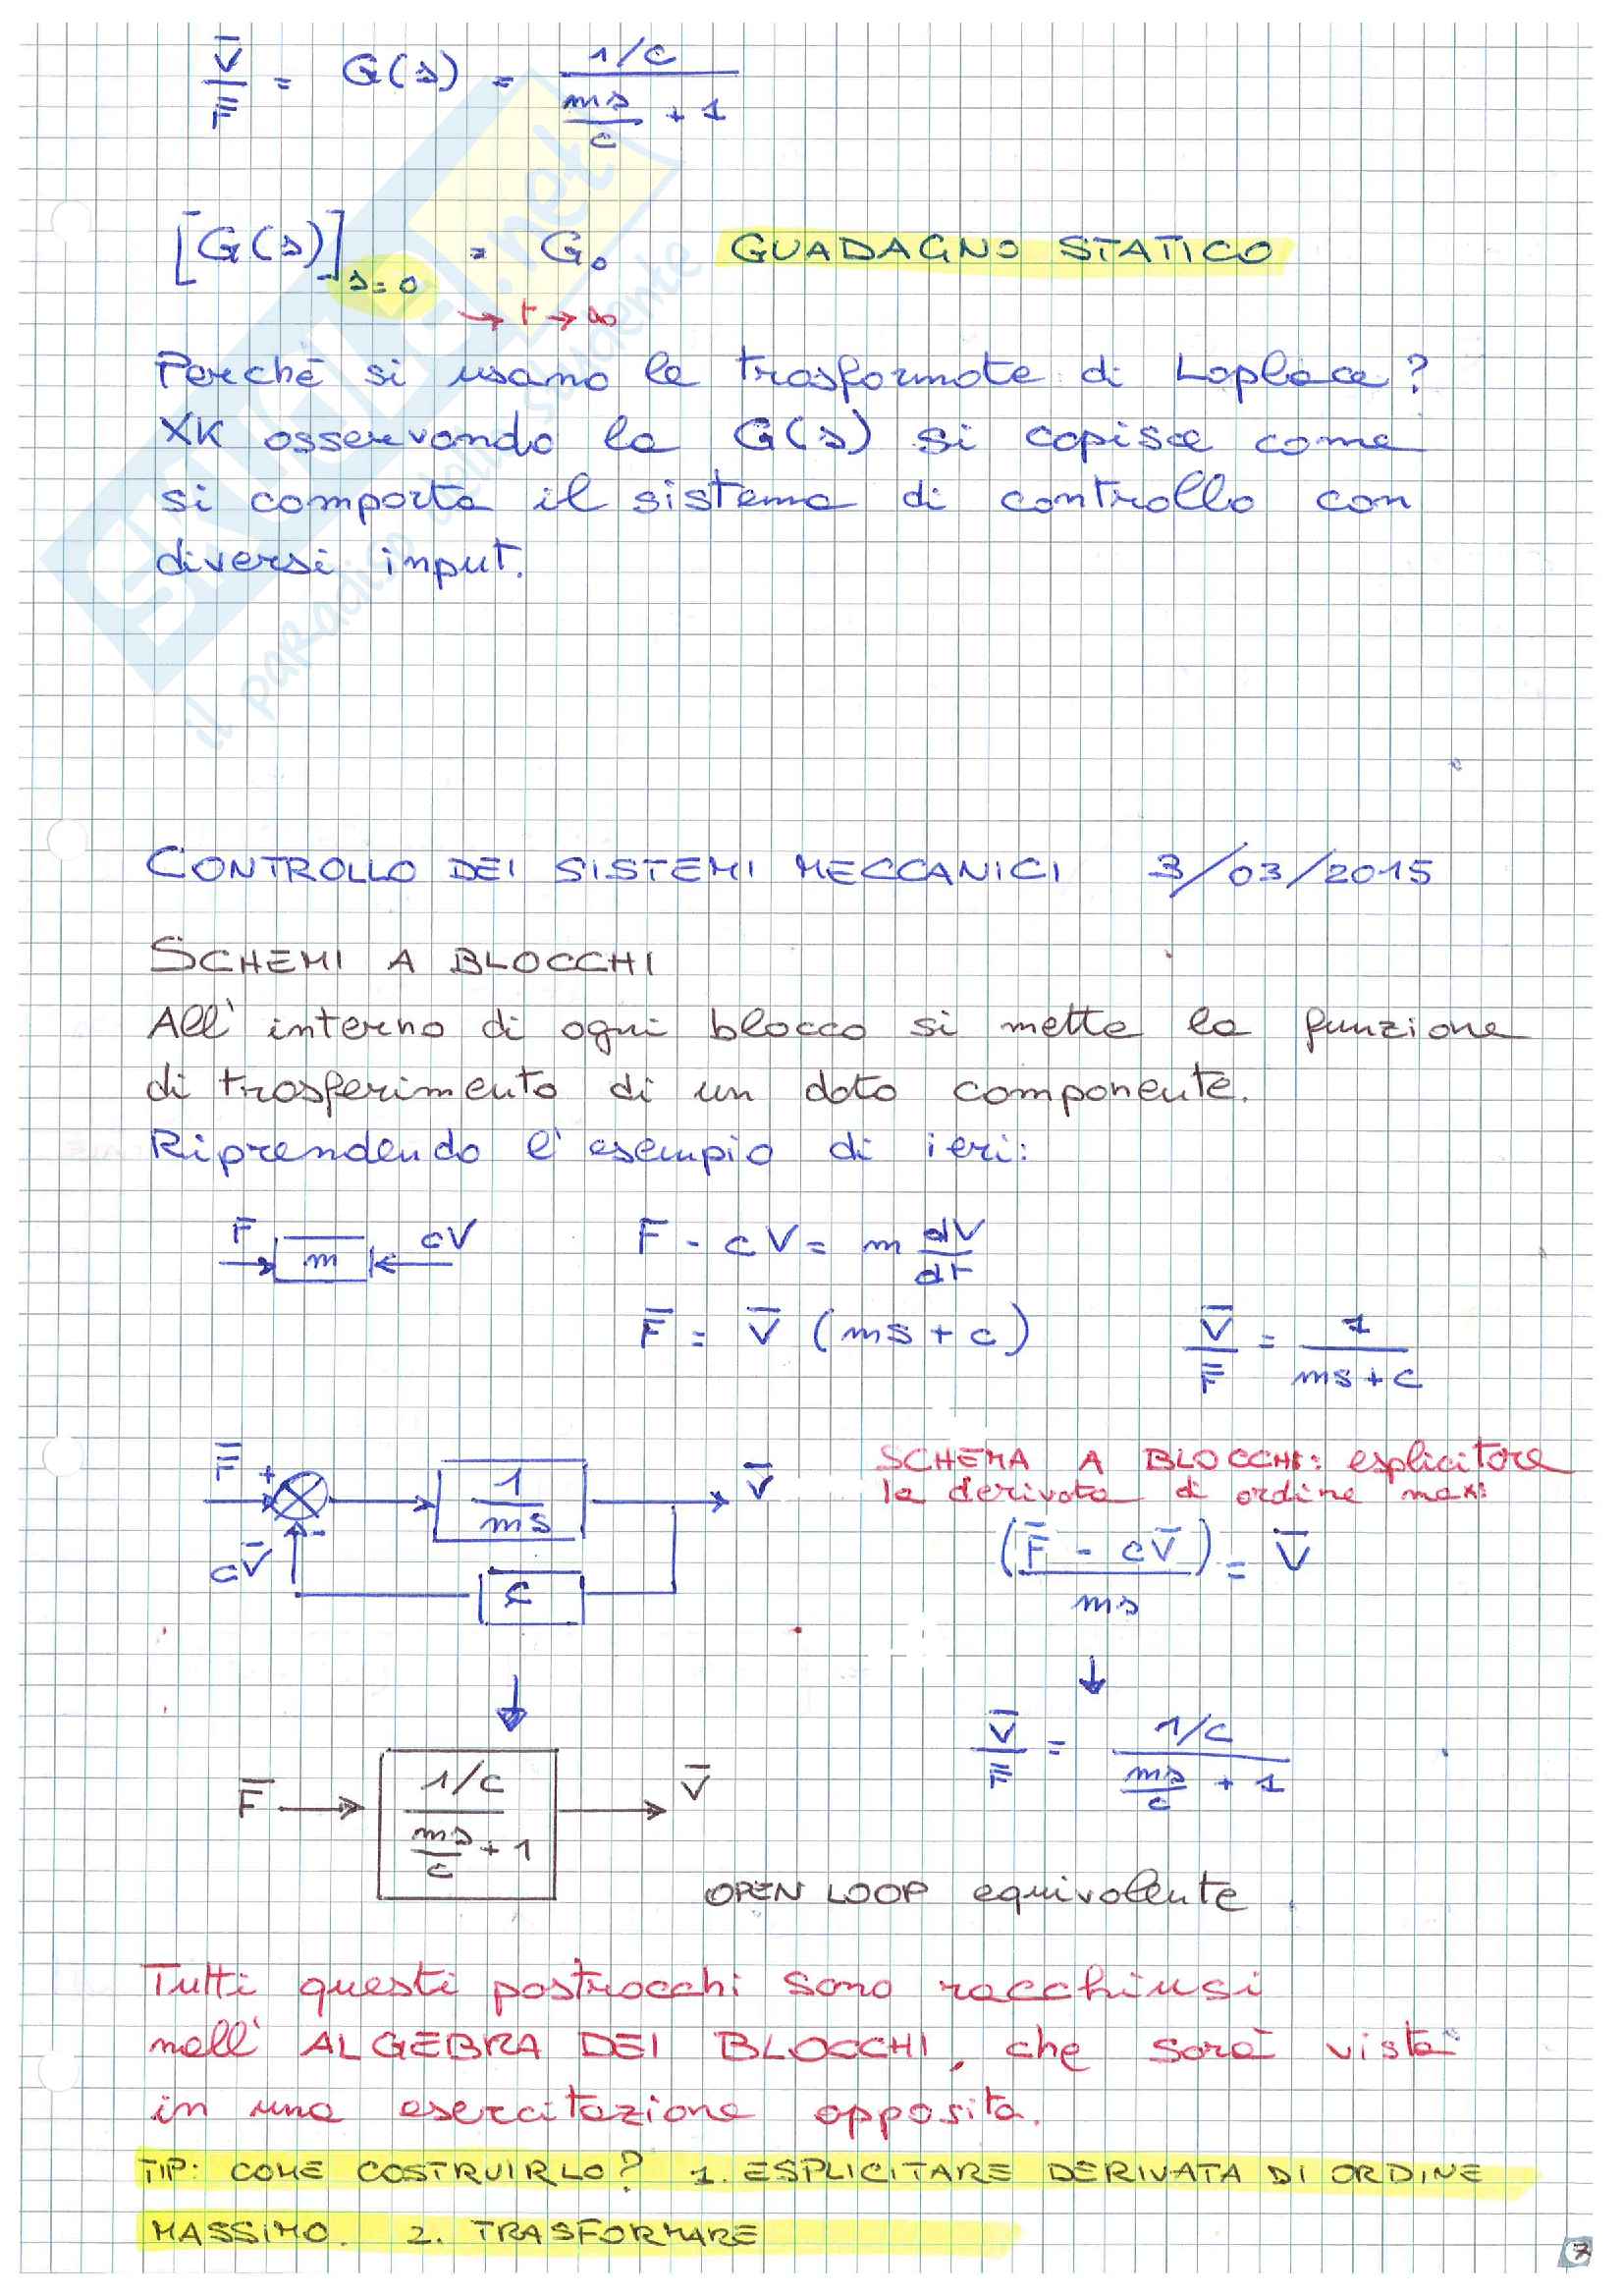 V̅/F̅ = G(s) = (1/c)/(ms/c + 1)
[G(s)]s=0 = G₀ GUADAGNO STATICO
→ t → ∞
Perché si usano le trasformate di Laplace?
XK osservando la G(s) si capisce come
si comporta il sistema di controllo con
diversi input.
CONTROLLO DEI SISTEMI MECCANICI 3/03/2015
SCHEMI A BLOCCHI
All'interno di ogni blocco si mette la funzione
di trasferimento di un dato componente.
Riprendendo l'esempio di ieri:
F m cV F - cV = m dV/dt
F̅ = V̅ (ms + c) V̅/F̅ = 1/(ms + c)
F̅ + 1/ms V̅ SCHEMA A BLOCCHI: esplicitare
la derivata di ordine max:
- cV̅ c (F̅ - cV̅)/ms = V̅
↓ ↓
V̅/F̅ = (1/c)/(ms/c + 1)
F̅ → (1/c)/(ms/c + 1) → V̅
OPEN LOOP equivalente
Tutti questi pastrocchi sono racchiusi
nell'ALGEBRA DEI BLOCCHI, che sarà vista
in una esercitazione apposita.
TIP: COME COSTRUIRLO? 1. ESPLICITARE DERIVATA DI ORDINE
MASSIMO. 2. TRASFORMARE
7